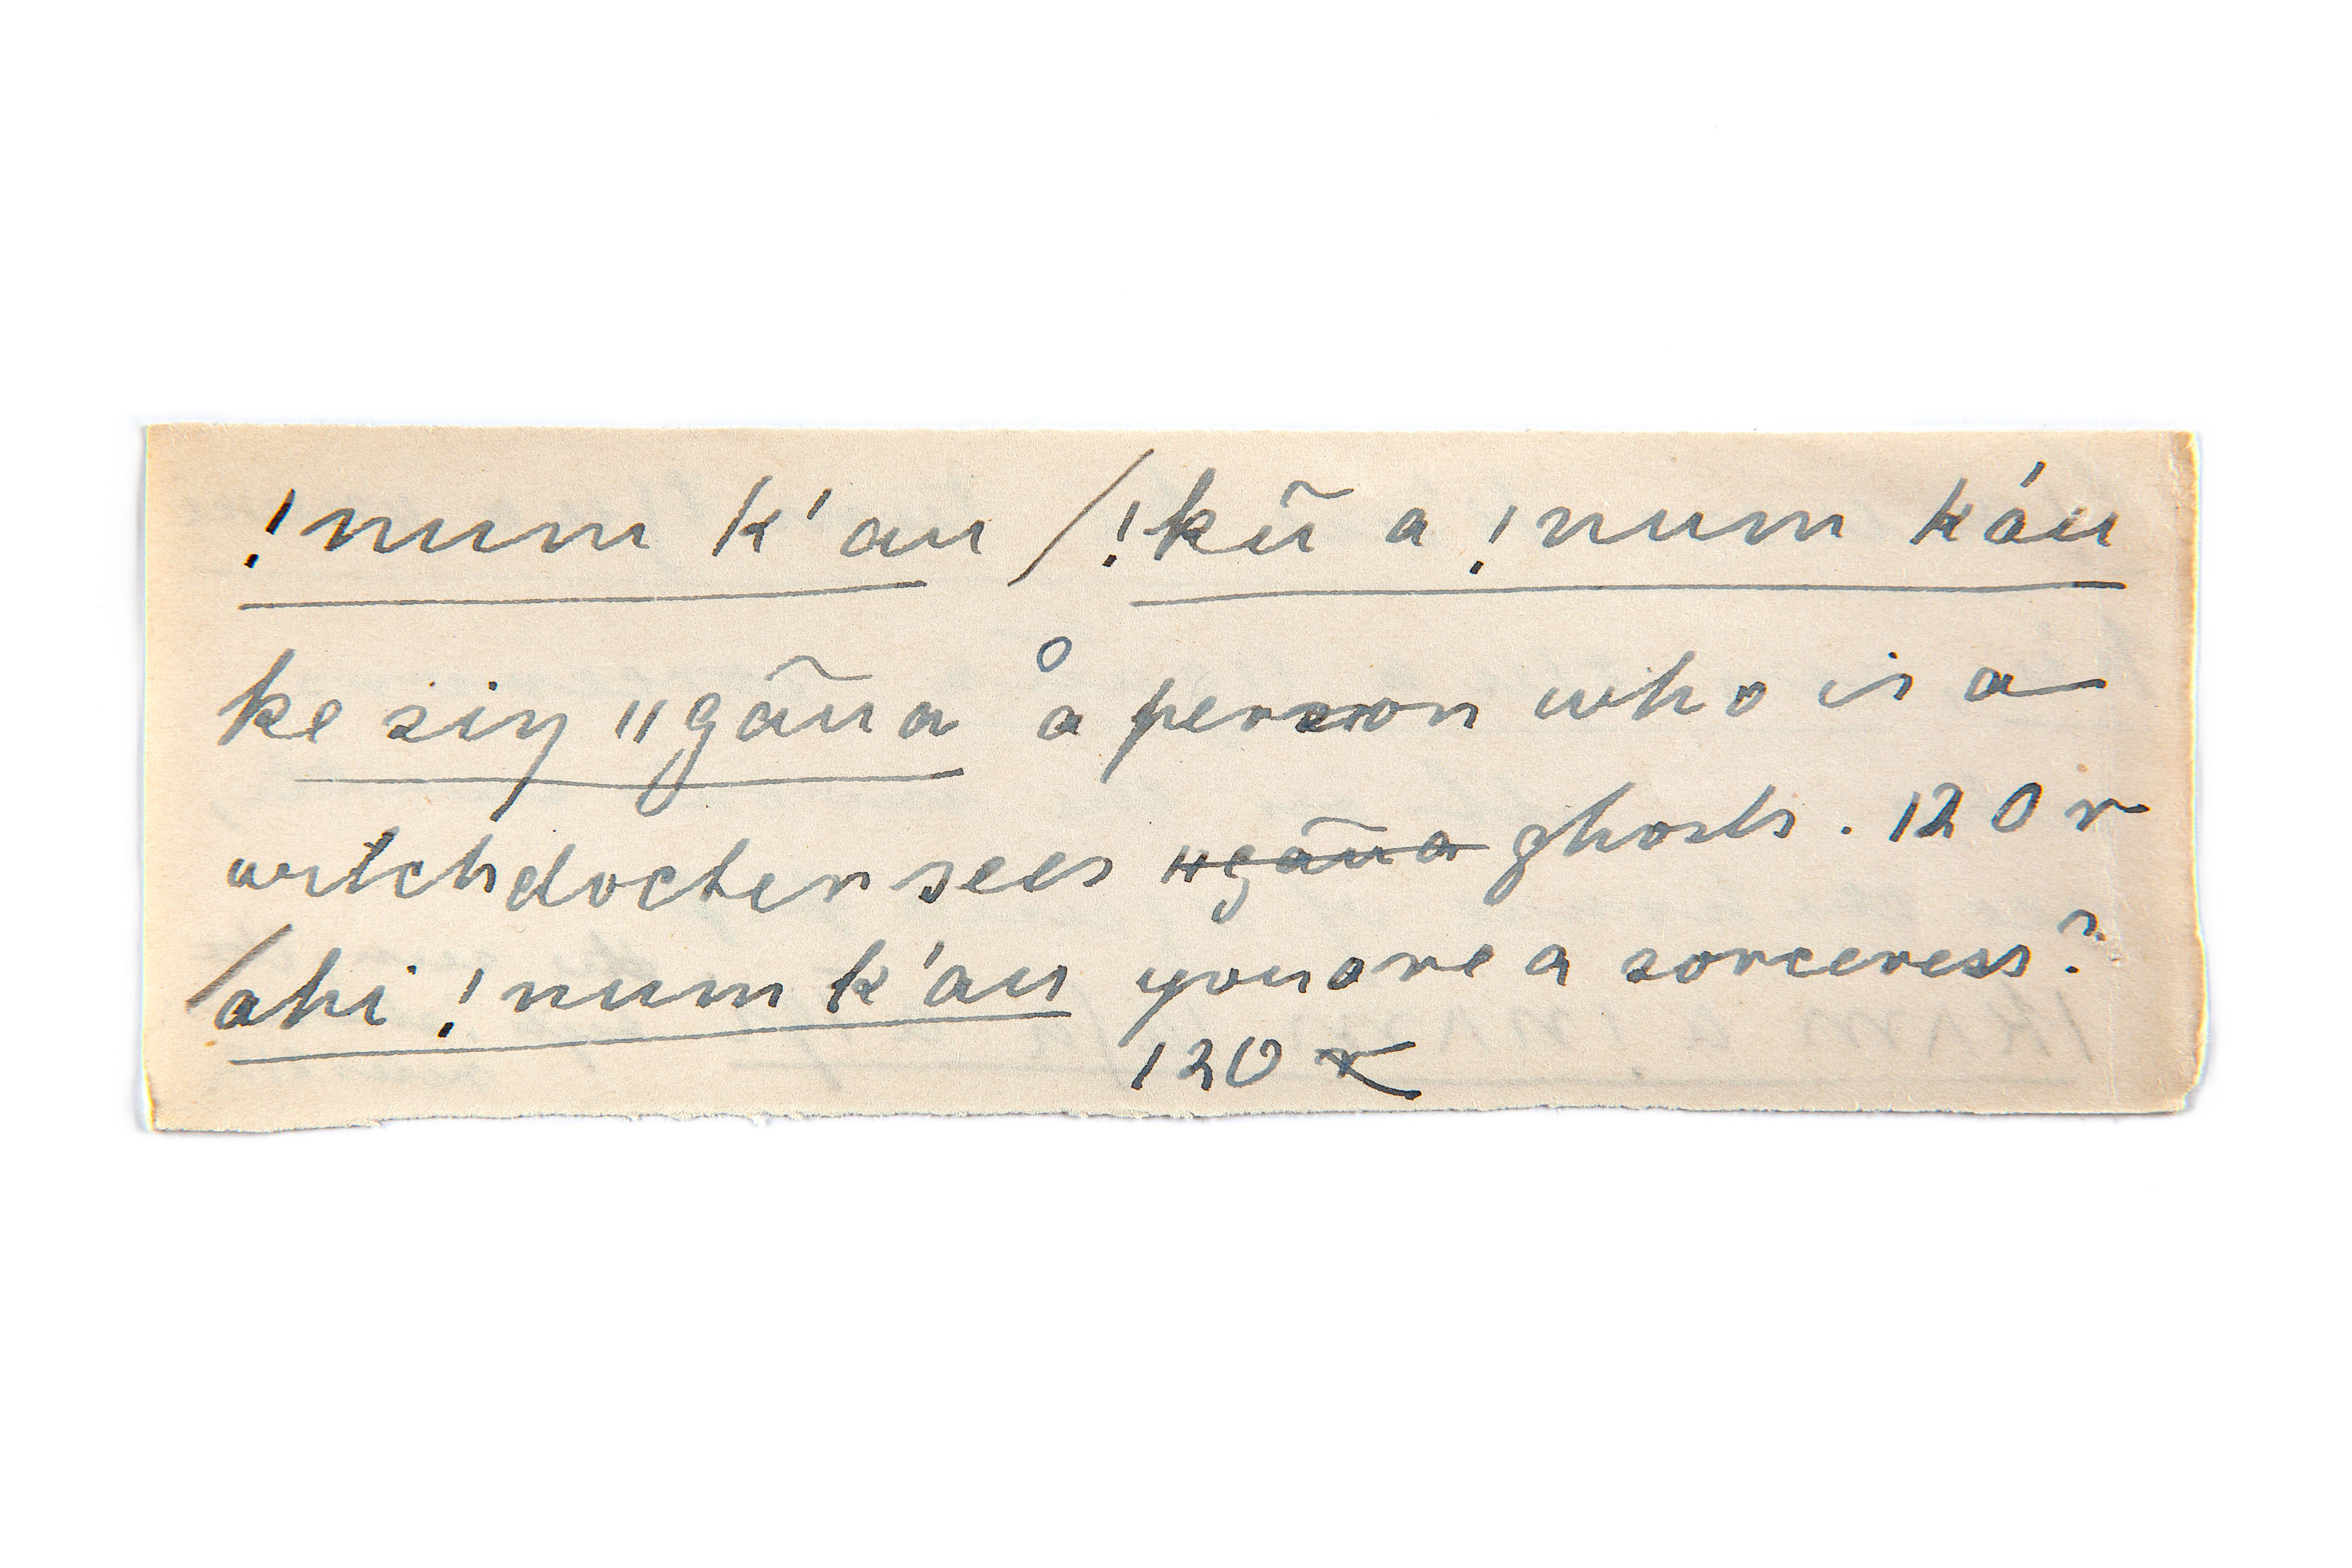 !num k'au /!kũ a !num k'au
ke siŋ ǁgãũa å person who is a
witchdoctor sees ǁgãũa ghosts. 120 r
/ahi !num k'au you are a sorceress?
120 r